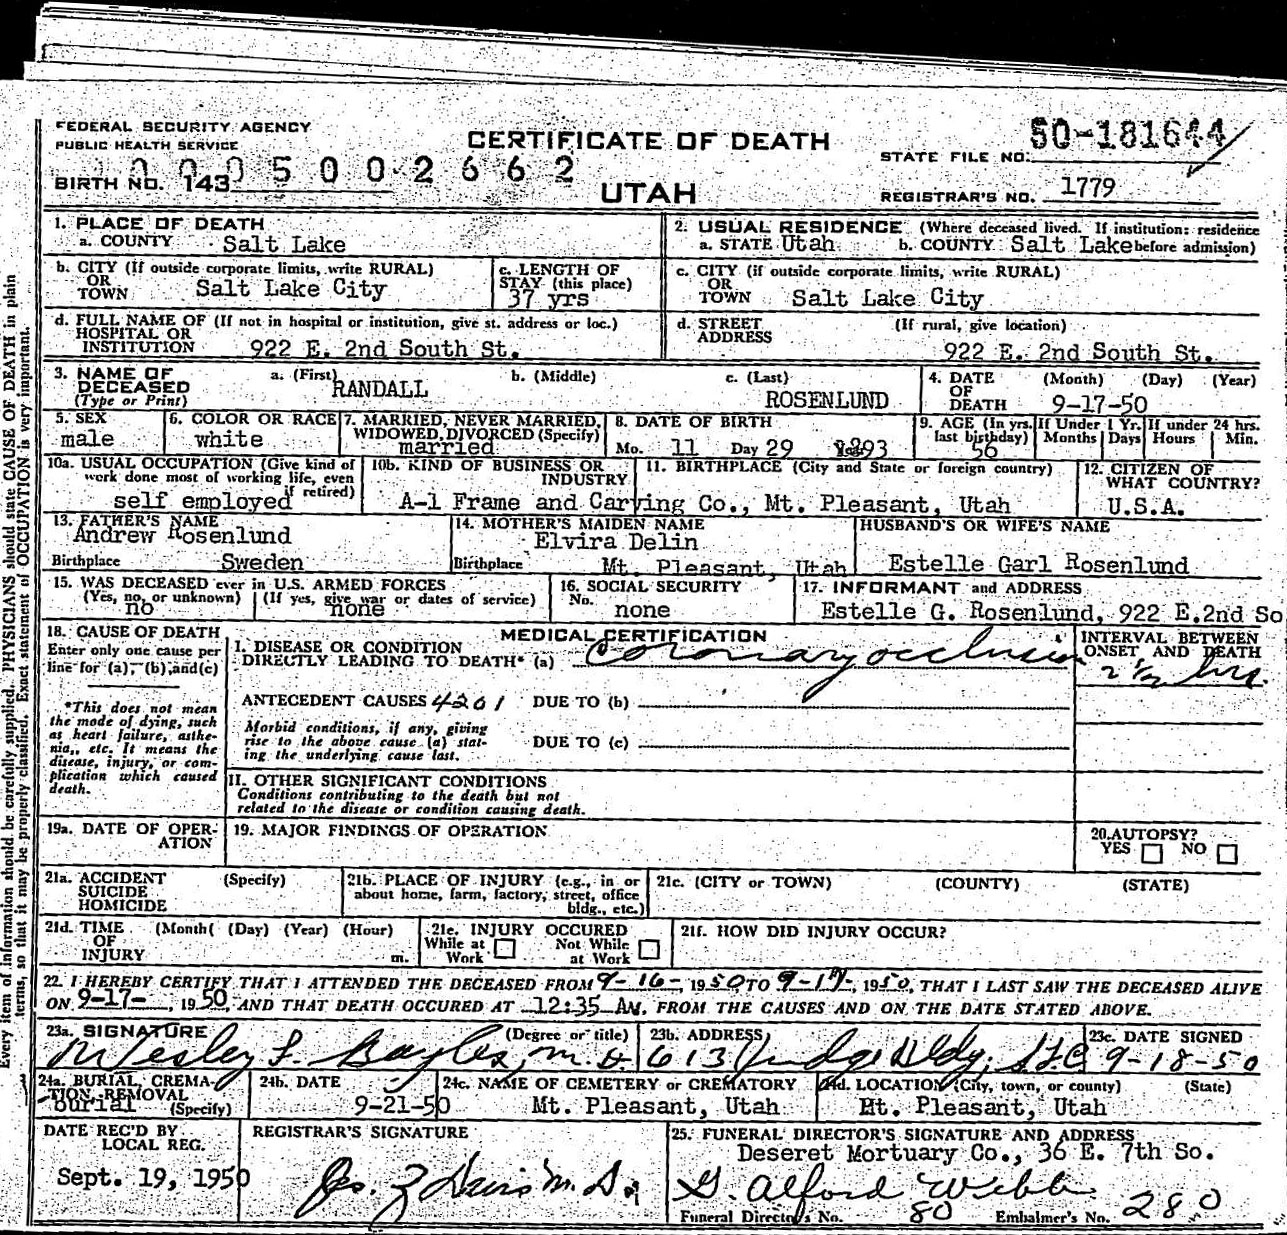 FEDERAL SECURITY AGENCY
PUBLIC HEALTH SERVICE
CERTIFICATE OF DEATH
UTAH
STATE FILE NO. 50-181644
REGISTRAR'S NO. 1779
5002662
BIRTH NO. 143
1. PLACE OF DEATH
a. COUNTY Salt Lake
2. USUAL RESIDENCE (Where deceased lived. If institution: residence before admission)
a. STATE Utah b. COUNTY Salt Lake
b. CITY (If outside corporate limits, write RURAL)
OR
TOWN Salt Lake City
c. LENGTH OF
STAY (this place)
37 yrs
c. CITY (if outside corporate limits, write RURAL)
OR
TOWN Salt Lake City
d. FULL NAME OF (If not in hospital or institution, give st. address or loc.)
HOSPITAL OR
INSTITUTION 922 E. 2nd South St.
d. STREET (If rural, give location)
ADDRESS
922 E. 2nd South St.
3. NAME OF
DECEASED
(Type or Print)
a. (First) RANDALL
b. (Middle)
c. (Last) ROSENLUND
4. DATE (Month) (Day) (Year)
OF
DEATH 9-17-50
5. SEX
male
6. COLOR OR RACE
white
7. MARRIED, NEVER MARRIED,
WIDOWED, DIVORCED (Specify)
married
8. DATE OF BIRTH
Mo. 11 Day 29 1893
9. AGE (In yrs. last birthday)
56
If Under 1 Yr.
Months Days
If under 24 hrs.
Hours Min.
10a. USUAL OCCUPATION (Give kind of
work done most of working life, even
if retired)
self employed
10b. KIND OF BUSINESS OR
INDUSTRY
A-1 Frame and Carving Co.,
11. BIRTHPLACE (City and State or foreign country)
Mt. Pleasant, Utah
12. CITIZEN OF
WHAT COUNTRY?
U.S.A.
13. FATHER'S NAME
Andrew Rosenlund
Birthplace Sweden
14. MOTHER'S MAIDEN NAME
Elvira Delin
Birthplace Mt. Pleasant, Utah
HUSBAND'S OR WIFE'S NAME
Estelle Garl Rosenlund
15. WAS DECEASED ever in U.S. ARMED FORCES
(Yes, no, or unknown) (If yes, give war or dates of service)
no none
16. SOCIAL SECURITY
No.
none
17. INFORMANT and ADDRESS
Estelle G. Rosenlund, 922 E.2nd So
18. CAUSE OF DEATH
Enter only one cause per
line for (a), (b), and (c)
*This does not mean
the mode of dying, such
as heart failure, asthe-
nia, etc. It means the
disease, injury, or com-
plication which caused
death.
MEDICAL CERTIFICATION
I. DISEASE OR CONDITION
DIRECTLY LEADING TO DEATH* (a) Coronary occlusion
INTERVAL BETWEEN
ONSET AND DEATH
2 1/2 hrs.
ANTECEDENT CAUSES 4201 DUE TO (b)
Morbid conditions, if any, giving
rise to the above cause (a) stat-
ing the underlying cause last.
DUE TO (c)
II. OTHER SIGNIFICANT CONDITIONS
Conditions contributing to the death but not
related to the disease or condition causing death.
19a. DATE OF OPER-
ATION
19. MAJOR FINDINGS OF OPERATION
20. AUTOPSY?
YES NO
21a. ACCIDENT (Specify)
SUICIDE
HOMICIDE
21b. PLACE OF INJURY (e.g., in or
about home, farm, factory, street, office
bldg., etc.)
21c. (CITY or TOWN) (COUNTY) (STATE)
21d. TIME (Month( (Day) (Year) (Hour)
OF
INJURY m.
21e. INJURY OCCURED
While at Work Not While at Work
21f. HOW DID INJURY OCCUR?
22. I HEREBY CERTIFY THAT I ATTENDED THE DECEASED FROM 9-16-, 1950 TO 9-17-, 1950, THAT I LAST SAW THE DECEASED ALIVE
ON 9-17-, 1950, AND THAT DEATH OCCURED AT 12:35 AM, FROM THE CAUSES AND ON THE DATE STATED ABOVE.
23a. SIGNATURE (Degree or title)
Wesley F. Bayles, M.D.
23b. ADDRESS
613 Judge Bldg, S.L.C
23c. DATE SIGNED
9-18-50
24a. BURIAL, CREMA-
TION, REMOVAL
(Specify)
burial
24b. DATE
9-21-50
24c. NAME OF CEMETERY or CREMATORY
Mt. Pleasant, Utah
24d. LOCATION (City, town, or county) (State)
Mt. Pleasant, Utah
DATE REC'D BY
LOCAL REG.
Sept. 19, 1950
REGISTRAR'S SIGNATURE
25. FUNERAL DIRECTOR'S SIGNATURE AND ADDRESS
Deseret Mortuary Co., 36 E. 7th So.
G. Alford Webb
Funeral Director's No. 80 Embalmer's No. 280
Every item of information should be carefully supplied. PHYSICIANS should state CAUSE OF DEATH in plain
terms, so that it may be properly classified. Exact statement of OCCUPATION is very important.